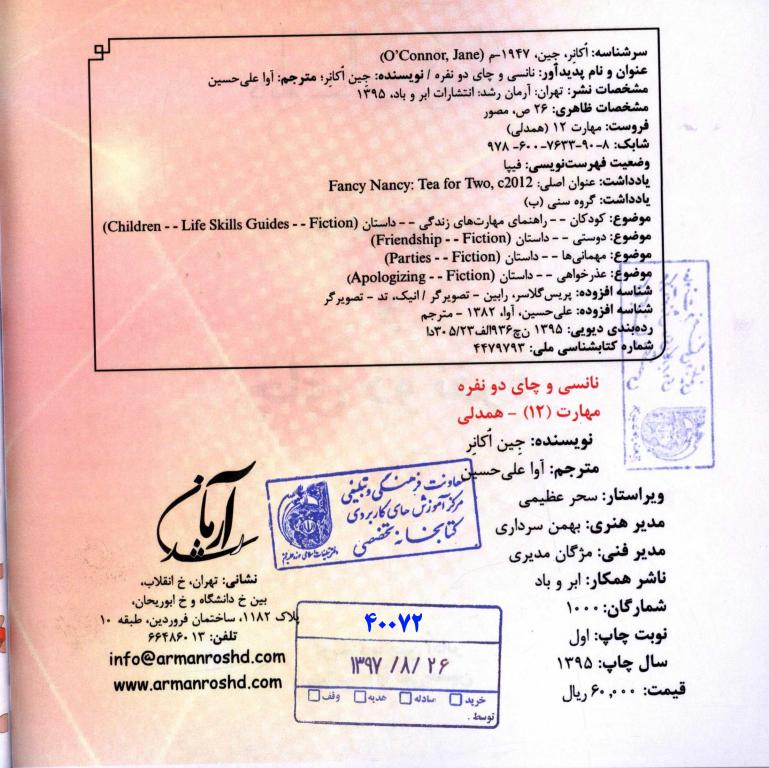 سرشناسه: اُکانِر، جین، ۱۹۴۷-م (O'Connor, Jane)
عنوان و نام پدیدآور: نانسی و چای دو نفره / نویسنده: جین اُکانِر؛ مترجم: آوا علی‌حسین
مشخصات نشر: تهران: آرمان رشد: انتشارات ابر و باد، ۱۳۹۵
مشخصات ظاهری: ۲۶ ص، مصور
فروست: مهارت ۱۲ (همدلی)
شابک: ۸-۹۰-۷۶۳۳-۶۰۰-۹۷۸
وضعیت فهرست‌نویسی: فیپا
یادداشت: عنوان اصلی: Fancy Nancy: Tea for Two, c2012
یادداشت: گروه سنی (ب)
موضوع: کودکان -- راهنمای مهارت‌های زندگی -- داستان (Children - - Life Skills Guides - - Fiction)
موضوع: دوستی -- داستان (Friendship - - Fiction)
موضوع: مهمانی‌ها -- داستان (Parties - - Fiction)
موضوع: عذرخواهی -- داستان (Apologizing - - Fiction)
شناسه افزوده: پریس‌گلاسر، رابین - تصویرگر / انیک، تد - تصویرگر
شناسه افزوده: علی‌حسین، آوا، ۱۳۸۲ - مترجم
رده‌بندی دیویی: ۱۳۹۵ ن‌چ۹۳۶الف۳۰۵/۲۳دا
شماره کتابشناسی ملی: ۴۴۷۹۷۹۳
نانسی و چای دو نفره
مهارت (۱۲) - همدلی
نویسنده: جِین اُکانِر
مترجم: آوا علی‌حسین
ویراستار: سحر عظیمی
مدیر هنری: بهمن سرداری
مدیر فنی: مژگان مدیری
ناشر همکار: ابر و باد
شمارگان: ۱۰۰۰
نوبت چاپ: اول
سال چاپ: ۱۳۹۵
قیمت: ۶۰,۰۰۰ ریال
معاونت فرهنگی و تبلیغی
مرکز آموزش های کاربردی
کتابخانه تخصصی
دفتر تبلیغات اسلامی حوزه علمیه قم
آرمان
رشد
نشانی: تهران، خ انقلاب،
بین خ دانشگاه و خ ابوریحان،
پلاک ۱۱۸۲، ساختمان فروردین، طبقه ۱۰
تلفن: ۶۶۴۸۶۰۱۳
info@armanroshd.com
www.armanroshd.com
۴۰۰۷۲
۱۳۹۷ /۸/ ۲۶
خرید مبادله هدیه وقف
توسط.